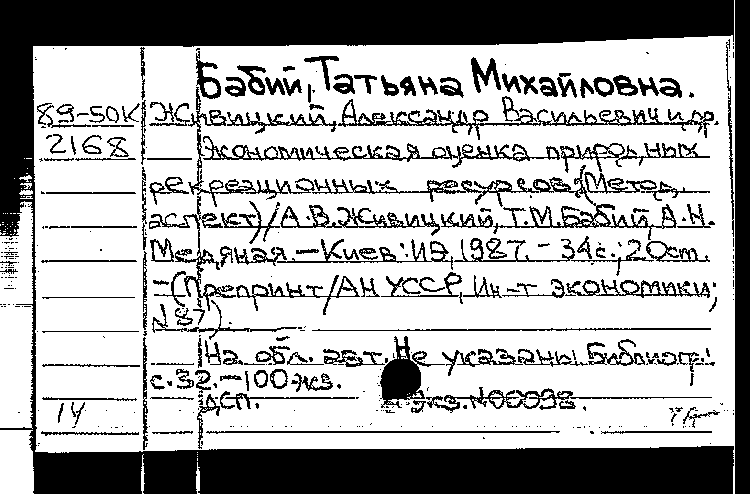 Бабий, Татьяна Михайловна.
89-50К Живицкий, Александр Васильевич и др.
2168 Экономическая оценка природных
рекреационных ресурсов: (Метод.
аспект) / А.В. Живицкий, Т.М. Бабий, А.Н.
Медяная. — Киев: ИЭ, 1987. - 34 с.; 20 см.
- (Препринт / АН УССР, Ин-т экономики;
N 87).
На обл. авт. не указаны. Библиогр.:
с. 32. — 100 экз.
ДСП. Экз. N 00098.
14